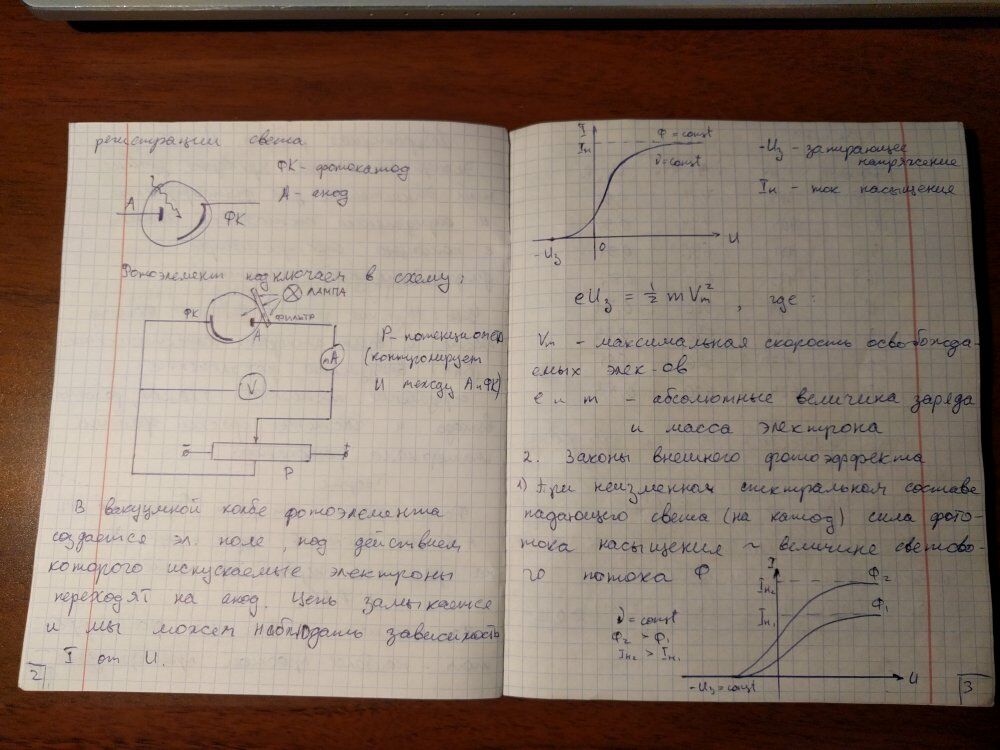 регистрации света
ФК - фотокатод
А - анод
А
ФК
Фотоэлемент подключаем в схему:
ЛАМПА
ФК
А
ФИЛЬТР
mA
V
Р - потенциометр
(контролирует
U между А и ФК)
-
+
Р
В вакуумной колбе фотоэлемента
создаётся эл. поле, под действием
которого испускаемые электроны
переходят на анод. Цепь замыкается
и мы можем наблюдать зависимость
I от U.
2
I
Iн
Φ = const
ν = const
-Uз
0
U
-Uз - запирающее
напряжение
Iн - ток насыщения
eUз = ½ m Vm², где:
Vm - максимальная скорость освобожда-
емых элек-ов
e и m - абсолютные величина заряда
и масса электрона
2. Законы внешнего фотоэффекта
1) При неизменном спектральном составе
падающего света (на катод) сила фото-
тока насыщения ~ величине светово-
го потока Φ
ν = const
Φ₂ > Φ₁
Iн₂ > Iн₁
I
Iн₂
Iн₁
Φ₂
Φ₁
-Uз = const
U
3